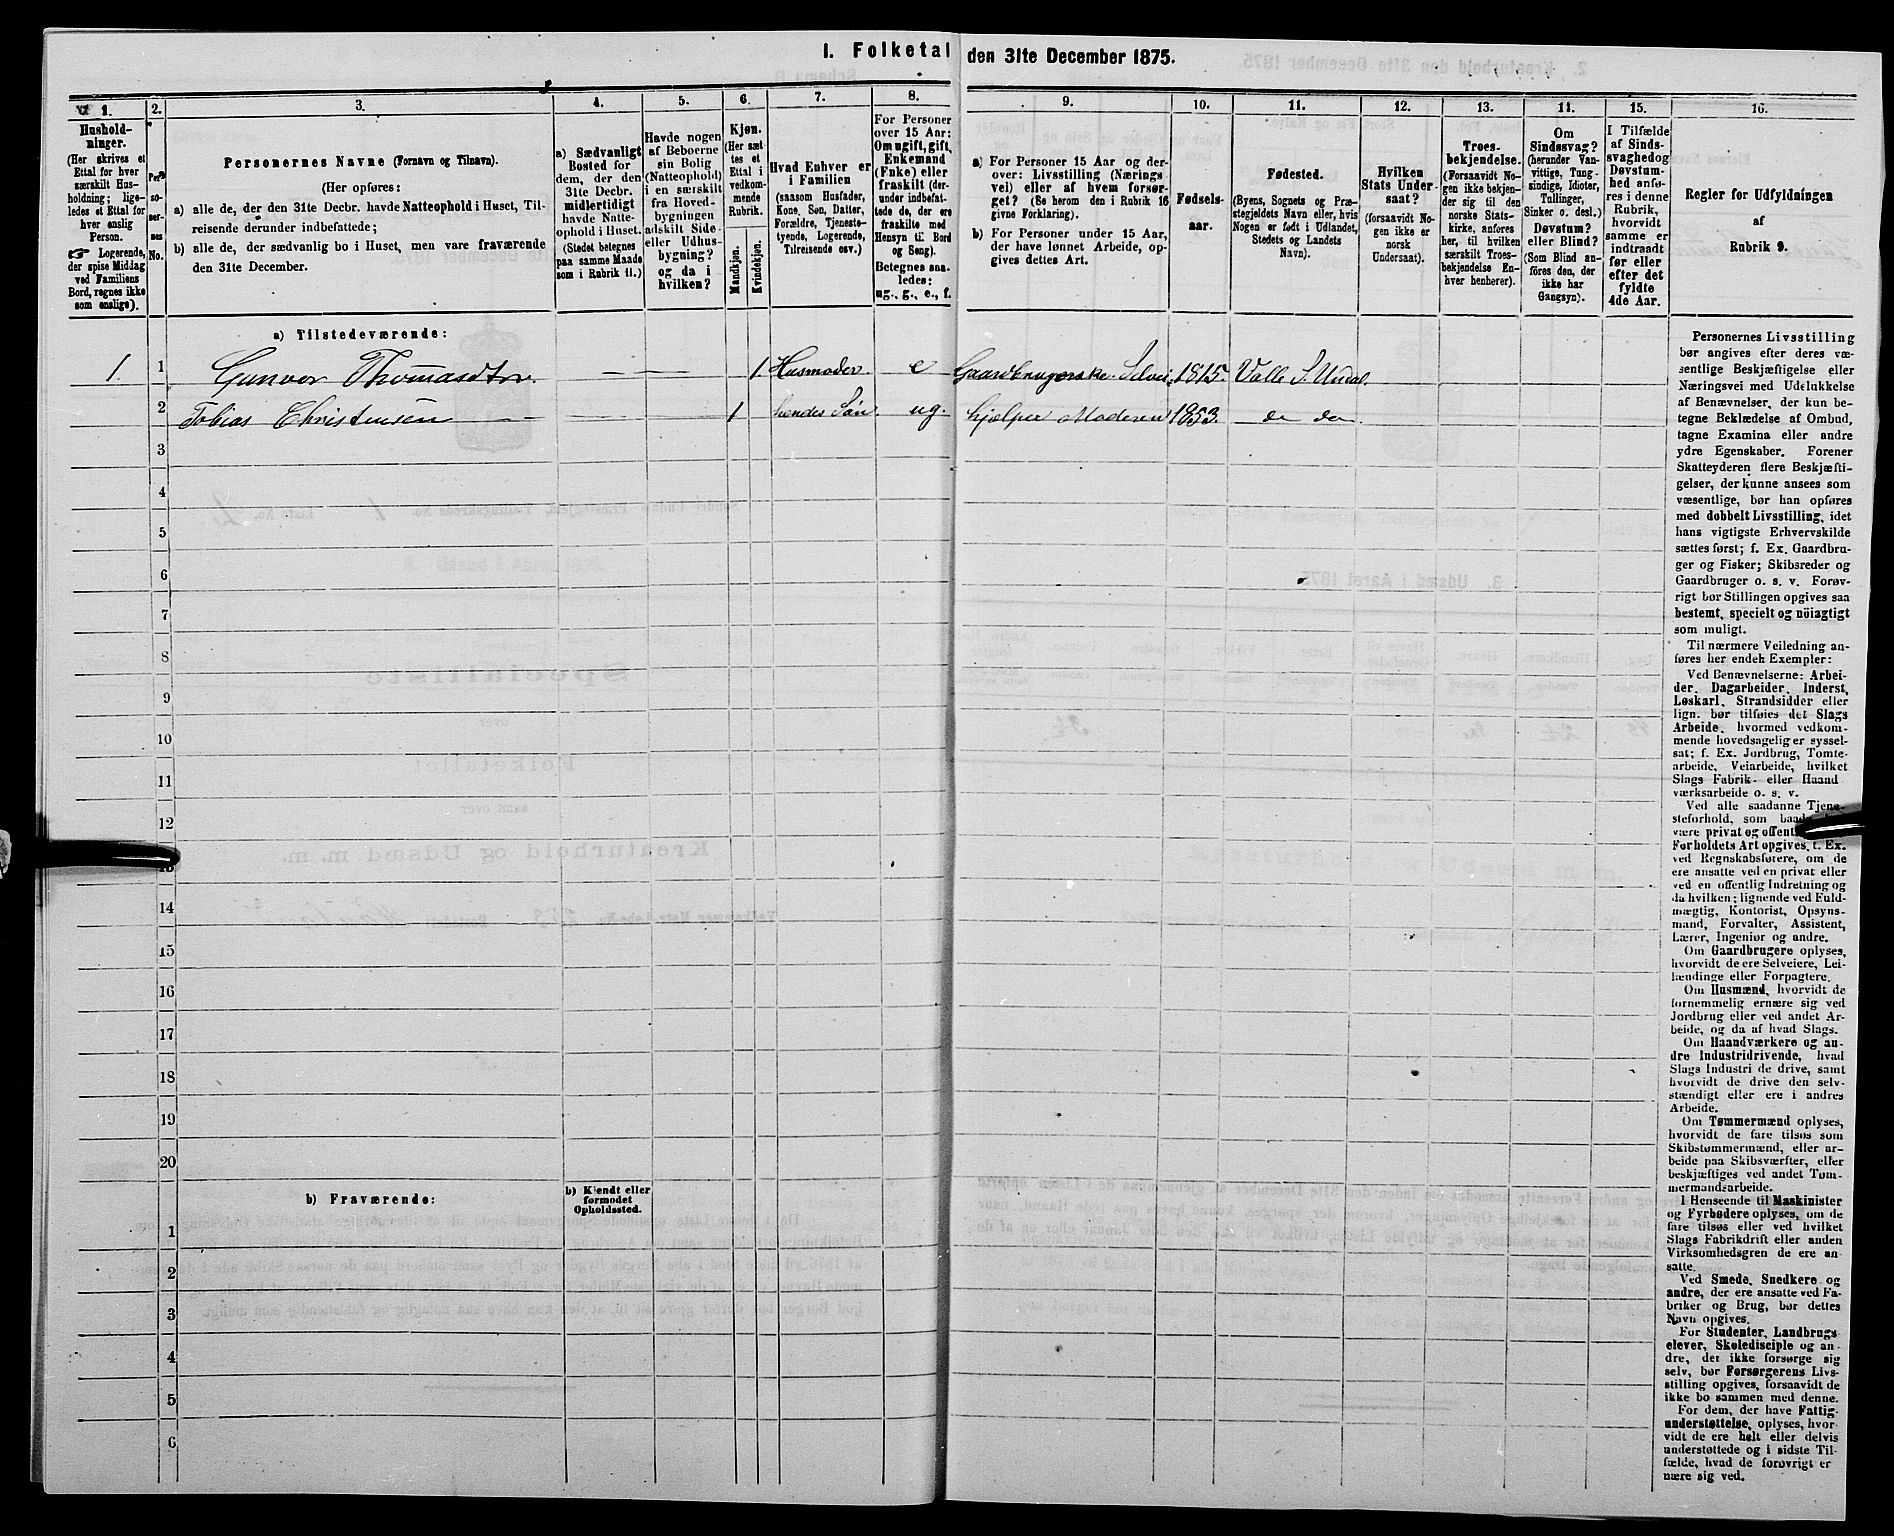 1. Folketal den 31te December 1875.
1.
Hushold-
ninger.
(Her skrives et
Ettal for hver
særskilt Hus-
holdning; lige-
ledes et Ettal for
hver enslig
Person.
☛ Logerende,
der spise Middag
ved Familiens
Bord, regnes ikke
som enslige).
2.
Per-
so-
ner-
nes
No.
3.
Personernes Navne (Fornavn og Tilnavn).
(Her opføres:
a) alle de, der den 31te Decbr. havde Natteophold i Huset, Til-
reisende derunder indbefattede;
b) alle de, der sædvanlig bo i Huset, men vare fraværende
den 31te December.
4.
a) Sædvanligt
Bosted for
dem, der den
31te Decbr.
midlertidigt
havde Natte-
ophold i Huset.
(Stedet betegnes
paa samme Maade
som i Rubrik 11.)
5.
Havde nogen
af Beboerne
sin Bolig
(Natteophold)
i en særskilt
fra Hoved-
bygningen
adskilt Side-
eller Udhus-
bygning?
og da i
hvilken?
6.
Kjøn.
(Her sæt-
tes et
Ettal i
vedkom-
mende
Rubrik.
Mandkjøn.
Kvindekjøn.
7.
Hvad Enhver er
i Familien
(saasom Husfader,
Kone, Søn, Datter,
Forældre, Tjeneste-
tyende, Logerende,
Tilreisende osv.)
8.
For Personer
over 15 Aar:
Om ugift, gift,
Enkemand
(Enke) eller
fraskilt (der-
under indbefat-
tede de, der ere
fraskilte med
Hensyn til Bord
og Seng).
Betegnes saa-
ledes:
ug., g., e., f.
9.
a) For Personer 15 Aar og der-
over: Livsstilling (Nærings
vei) eller af hvem forsør-
get? (Se herom den i Rubrik 16
givne Forklaring).
b) For Personer under 15 Aar,
der have lønnet Arbeide, op-
gives dettes Art.
10.
Fødsels-
aar.
11.
Fødested.
(Byens, Sognets og Præ-
stegjeldets Navn eller, hvis
Nogen er født i Udlandet,
Stedets og Landets
Navn).
12.
Hvilken
Stats Under-
saat?
(forsaavidt No-
gen ikke er
norsk
Undersaat).
13.
Troes-
bekjendelse.
(Forsaavidt No-
gen ikke bekjen-
der sig til den
norske Stats-
kirke, anføres
her, til hvilken
særskilt Troes-
bekjendelse En-
hver henhører).
14.
Om
Sindssvag?
(herunder Van-
vittige, Tung-
sindige, Idioter,
Tullinger,
Sinker o. desl.)
Døvstum?
eller Blind?
(Som Blind an-
føres den, der
ikke har
Gangsyn).
15.
I Tilfælde
af Sinds-
svaghed og
Døvstum-
hed anfø-
res i denne
Rubrik,
hvorvidt
samme er
indtraadt
før eller
efter det
fyldte
4de Aar.
16.
Regler for Udfyldningen
af
Rubrik 9.
a) Tilstedeværende:
1. 1 Gunvor Thomasdtr. — — 1. Husmoder. e Gaardbrugerske. Selvei. 1815. Valle S. Undal.
2 Tobias Christensen — — 1 hendes Søn ug. hjælper Moderen 1853. do do
3
4
5
6
7
8
9
10
11
12
13
14
15
16
17
18
19
20
b) Fraværende:
b) Kjendt eller
formodet
Opholdssted.
1
2
3
4
5
6
Personernes Livsstilling
bør angives efter deres væ-
sentlige Beskjæftigelse eller
Næringsvei med Udelukkelse
af Benævnelser, der kun be-
tegne Beklædelse af Ombud,
tagne Examina eller andre
ydre Egenskaber. Forener
Skatteyderen flere Beskjæfti-
gelser, der kunne ansees som
væsentlige, bør han opføres
med dobbelt Livsstilling, idet
hans vigtigste Erhvervskilde
sættes først; f. Ex. Gaardbru-
ger og Fisker; Skibsreder og
Gaardbruger o. s. v. Forøv-
rigt bør Stillingen opgives saa
bestemt, specielt og nöiagtigt
som muligt.
Til nærmere Veiledning an-
føres her endek Exempler:
Ved Benævnelserne: Arbei-
der, Dagarbeider, Inderst,
Løskarl, Strandsidder eller
lign. bør tilføies det Slags
Arbeide, hvormed vedkom-
mende hovedsagelig er syssel-
sat; f. Ex. Jordbrug, Tomte-
arbeide, Veiarbeide, hvilket
Slags Fabrik- eller Haand
værksarbeide o. s. v.
Ved alle saadanne Tjene-
steforhold, som baade
være privat og offent
Forholdets Art opgives, f. Ex.
ved Regnskabsførere, om de
ere ansatte ved en privat eller
ved en offentlig Indretning og
da hvilken; lignende ved Fuld-
mægtig, Kontorist, Opsyns-
mand, Forvalter, Assistent,
Lærer, Ingeniør og andre.
Om Gaardbrugere oplyses,
hvorvidt de ere Selveiere, Lei-
lændinge eller Forpagtere.
Om Husmænd, hvorvidt de
fornemmelig ernære sig ved
Jordbrug eller ved andet Ar-
beide, og da af hvad Slags.
Om Haandværkere og an-
dre Industridrivende, hvad
Slags Industri de drive, samt
hvorvidt de drive den selv-
stændigt eller ere i andres
Arbeide.
Om Tømmermænd oplyses,
hvorvidt de fare tilsøs som
Skibstømmermænd, eller ar-
beide paa Skibsværfter, eller
beskjæftiges ved andet Tøm-
mermandsarbeide.
I Henseende til Maskinister
og Fyrbødere oplyses, om de
fare tilsøs eller ved hvilket
Slags Fabrikdrift eller anden
Virksomhedsgren de ere an-
satte.
Ved Smede, Snedkere og
andre, der ere ansatte ved Fa-
briker og Brug, bør dettes
Navn opgives.
For Studenter, Landbrugs
elever, Skoledisciple og an-
dre, der ikke forsørge sig
selv, bør Forsørgerens Livs-
stilling opgives, forsaavidt de
ikke bo sammen med denne.
For dem, der have Fattig-
understøttelse, oplyses, hvor-
vidt de ere helt eller delvis
understøttede og i sidste Til-
fælde, hvad de forøvrigt er
nære sig ved.